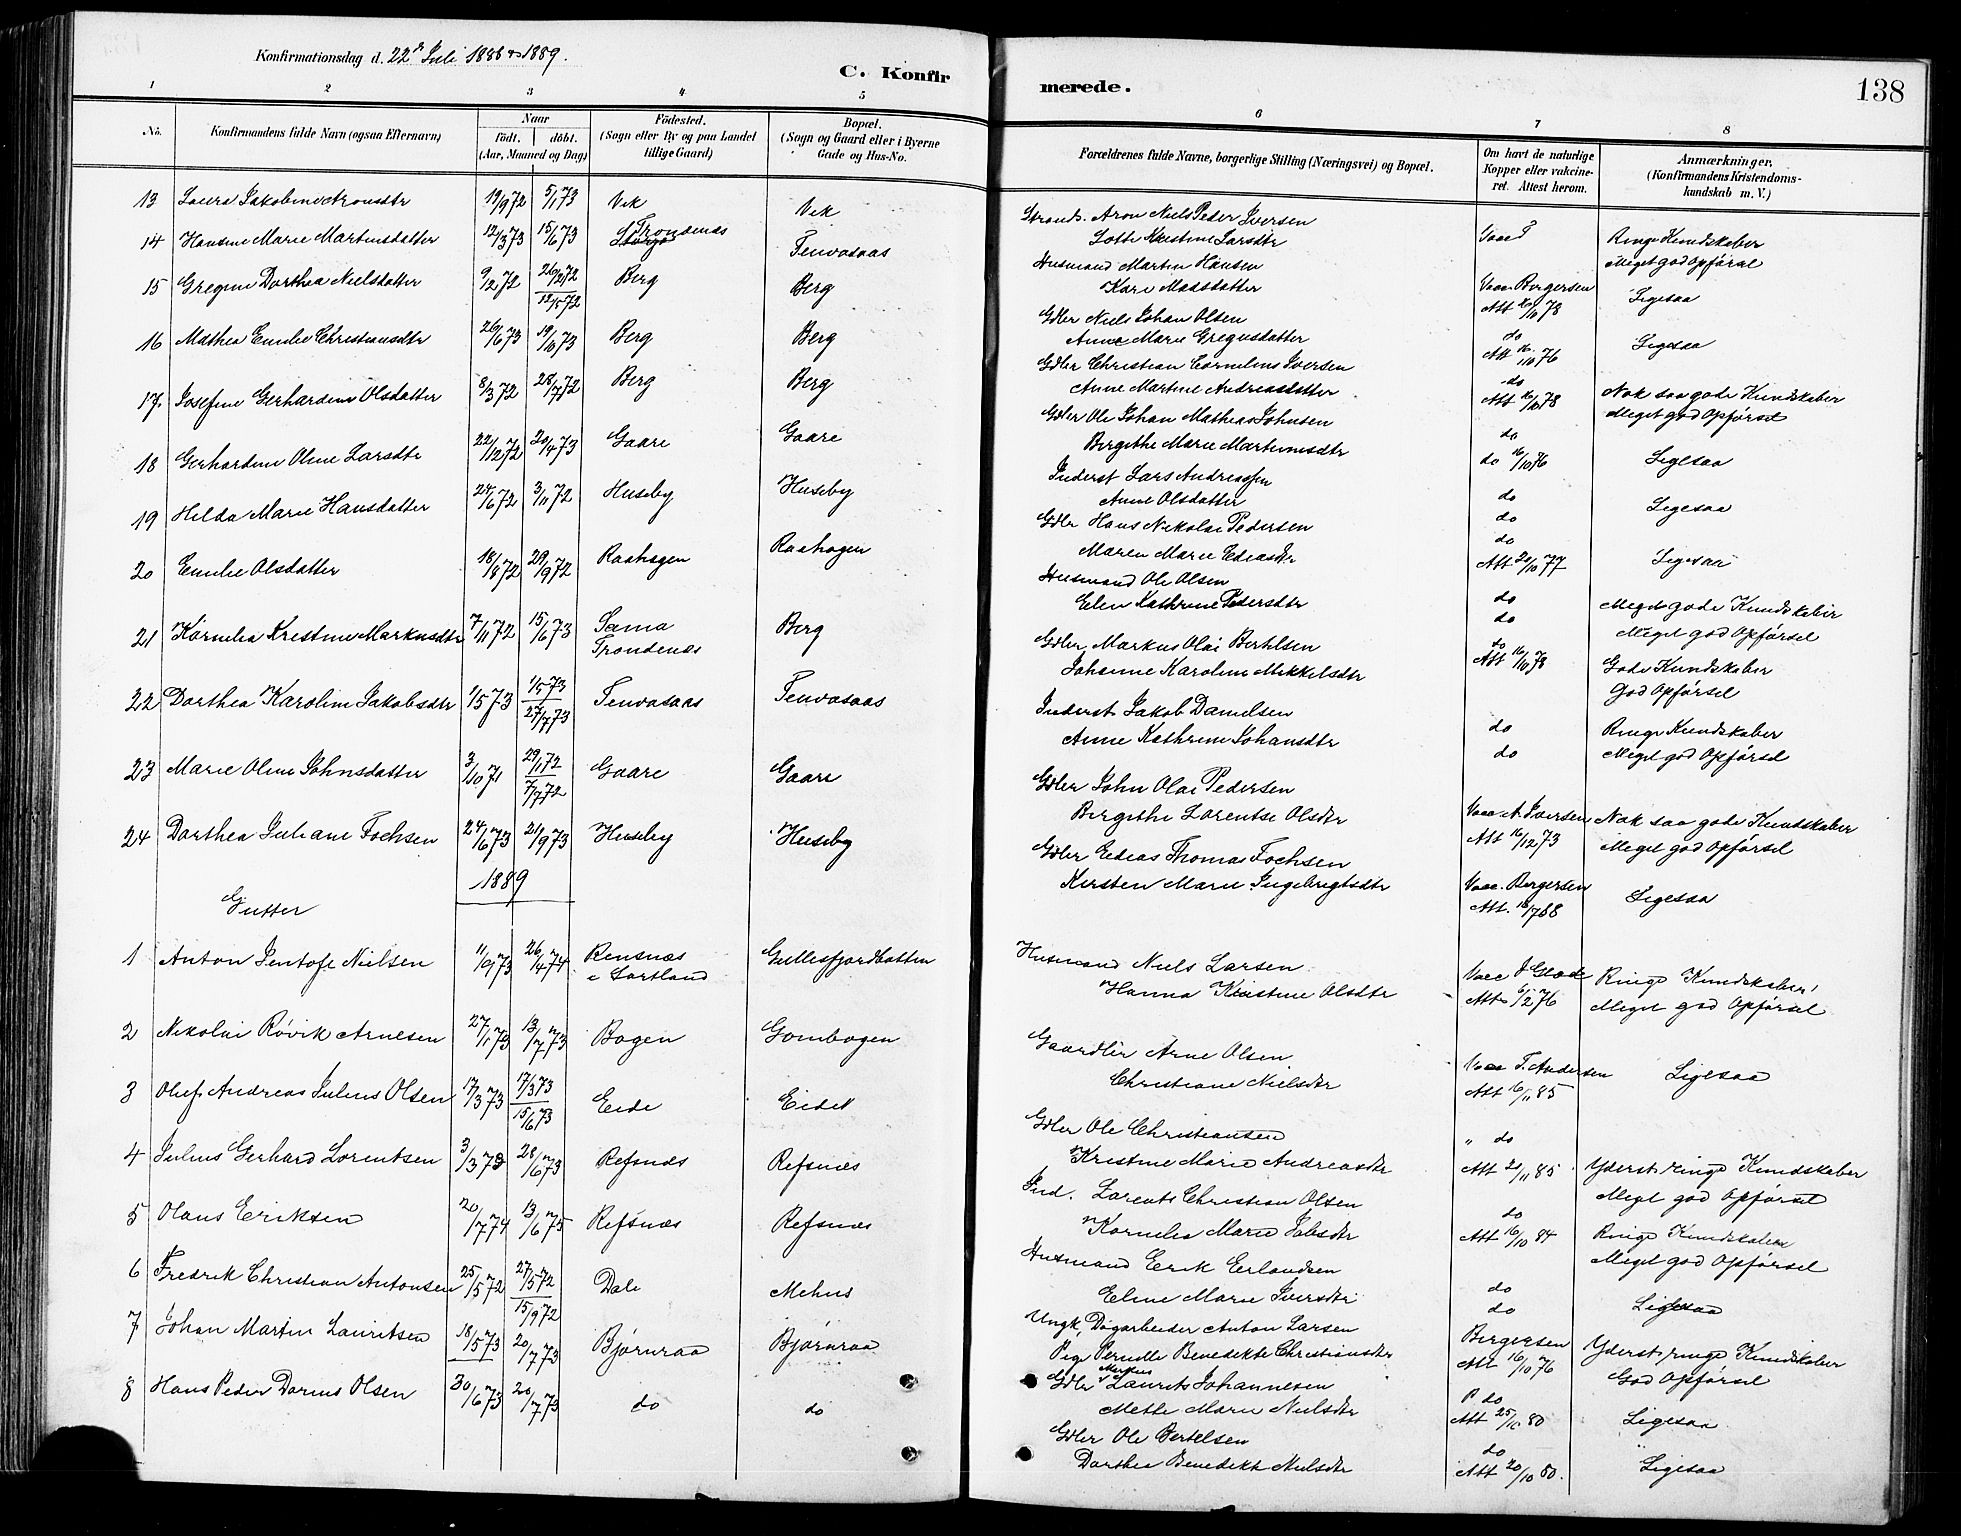 Konfirmationsdag d. 22de Juli 1888 & 1889.
C. Konfir
merede.
138
1 2 3 4 5 6 7 8
No.
Konfirmandens fulde Navn (ogsaa Efternavn)
Naar
født. døbt.
(Aar, Maaned og Dag)
Fødested.
(Sogn eller By og paa Landet
tillige Gaard)
Bopæl.
(Sogn og Gaard eller i Byerne
Gade og Hus-No.
Forældrenes fulde Navne, borgerlige Stilling (Næringsvei) og Bopæl.
Om havt de naturlige
Kopper eller vakcine-
ret. Attest herom.
Anmærkninger.
(Konfirmandens Kristendoms-
kundskab m. V.)
13 Laura Jakobine Aronsdtr 19/9 72 5/1 73 Vik Vik
Strands. Aron Niels Peder Iversen
Lotte Kristine Larsdtr
Vacc
Ringe Kundskaber
Meget god Opførsel
14 Hansine Marie Martinsdatter 12/3 73 15/6 73 Trondenæs Tennvasaas
Husmand Martin Hansen
Kari Madsdatter
Vacc. Bergersen
Att 16/10 78
Ligesaa
15 Gregine Dorthea Nielsdatter 9/2 72 26/2 72 Berg Berg
12/5 72
Gdbr Niels Johan Olsen
Anne Marie Gregusdatter
do
Att 16/10 76
Ligesaa
16 Mathea Emilie Christiansdtr 26/6 73 19/10 73 Berg Berg
Gdbr Christian Cornelius Iversen
Anne Martine Andreasdatter
do
Att 16/10 78
Nok saa gode Kundskaber
Meget god Opførsel
17. Josefine Gerhardine Olsdatter 8/3 72 28/7 72 Berg Berg
Gdbr Ole Johan Mathias Johnsen
Bergithe Marie Martinusdtr
do
do 16/10 76
Ligesaa
18 Gerhardine Oline Larsdtr 22/12 72 20/4 73 Gaare Gaare
Inderst Lars Andreassen
Anne Olsdatter
do
do
Ligesaa
19 Helda Marie Hansdatter 24/6 72 3/11 72 Huseby Huseby
Gdbr Hans Nikolai Pedersen
Maren Marie Edeasdtr
do
Att 20/10 77
Ligesaa
20 Emilie Olsdatter 18/8 72 29/9 72 Raahagen Raahagen
Husmand Ole Olsen
Elen Kathrine Pedersdtr
do
do
Meget gode Kundskaber
Meget god Opførsel
21 Kornelia Kristine Markusdtr 7/11 72 15/6 73 Sama Berg
Trondenæs
Gdbr Markus Olai Berthsen
Johanne Karoline Mikkelsdtr
do
Att 16/10 78
Gode Kundskaber
God Opførsel
22 Dorthea Karoline Jakobsdtr 1/5 73 1/5 73 Tenvasaas Tenvasaas
27/7 73
Inderst Jakob Danielsen
Anne Kathrine Johansdtr
do
do
Ringe Kundskaber
Meget god Opførsel
23 Marie Oline Johnsdatter 3/10 71 29/1 72 Gaare Gaare
7/7 72
Gdbr John Olai Pedersen
Bergithe Lorentse Olsdtr
Vacc A. Iversen
Att 16/12 73
Nok saa gode Kundskaber
Meget god Opførsel
24 Dorthea Juliane Fochsen 24/6 73 21/9 73 Huseby Huseby
Gdbr Edeas Thomas Fochsen
Kirsten Marie Ingebrigtsdtr
Vacc. Bergersen
Att.
Ligesaa
1889
Gutter
1 Anton Jentoft Nielsen 11/9 73 26/4 74 Rensnæs Gullesfjordbotten
i Sortland
Husmand Niels Larsen
Hanna Kristine Olsdtr
Vacc
Att 6/2 76
Ringe Kundskaber
Meget god Opførsel
2 Nikolai Røvik Arnesen 27/1 73 13/7 73 Bogen Gombogen
Gaardbr Arne Olsen
Christiane Nielsdtr
Vacc T. Andersen
Att 16/11 85
Ligesaa
3 Oluf Andreas Julius Olsen 17/3 73 17/3 73 Eide Eidet
15/6 73
Gdbr Ole Christiansen
Kristine Marie Andreasdtr
" do
Att 20/11 85
Yderst ringe Kundskaber
Meget god Opførsel
4 Julius Gerhard Lorentsen 3/3 73 28/6 73 Refsnæs Refsnæs
Ind. Lorents Christian Olsen
Kornelia Marie Jobsdtr
do
Att 16/10 84
Ringe Kundskaber
Meget god Opførsel
5 Olaus Eriksen 20/7 74 13/6 75 Refsnæs Refsnæs
Husmand Erik Erlandsen
Eline Marie Iversdtr
do
do
Ligesaa
6 Fredrik Christian Antonsen 25/5 72 27/5 72 Dale Mehus
15/9 72
Ungk. Døgarbeider Anton Larsen
Pige Pernille Benedikte Christiansdtr
Bergersen
Att 16/10 76
Yderst ringe Kundskaber
God Opførsel
7 Johan Martin Lauritsen 18/5 73 20/7 73 Bjørnraa Bjørnraa
Gdbr Laurits Johannesen
Mette Marie Nielsdtr
do
Att 25/10 80
Ligesaa
8 Hans Peder Darius Olsen 30/6 73 20/7 73 do do
Gdbr Ole Bertelsen
Dorthea Benedikte Nielsdtr
do
Att 20/10 80.
Ligesaa